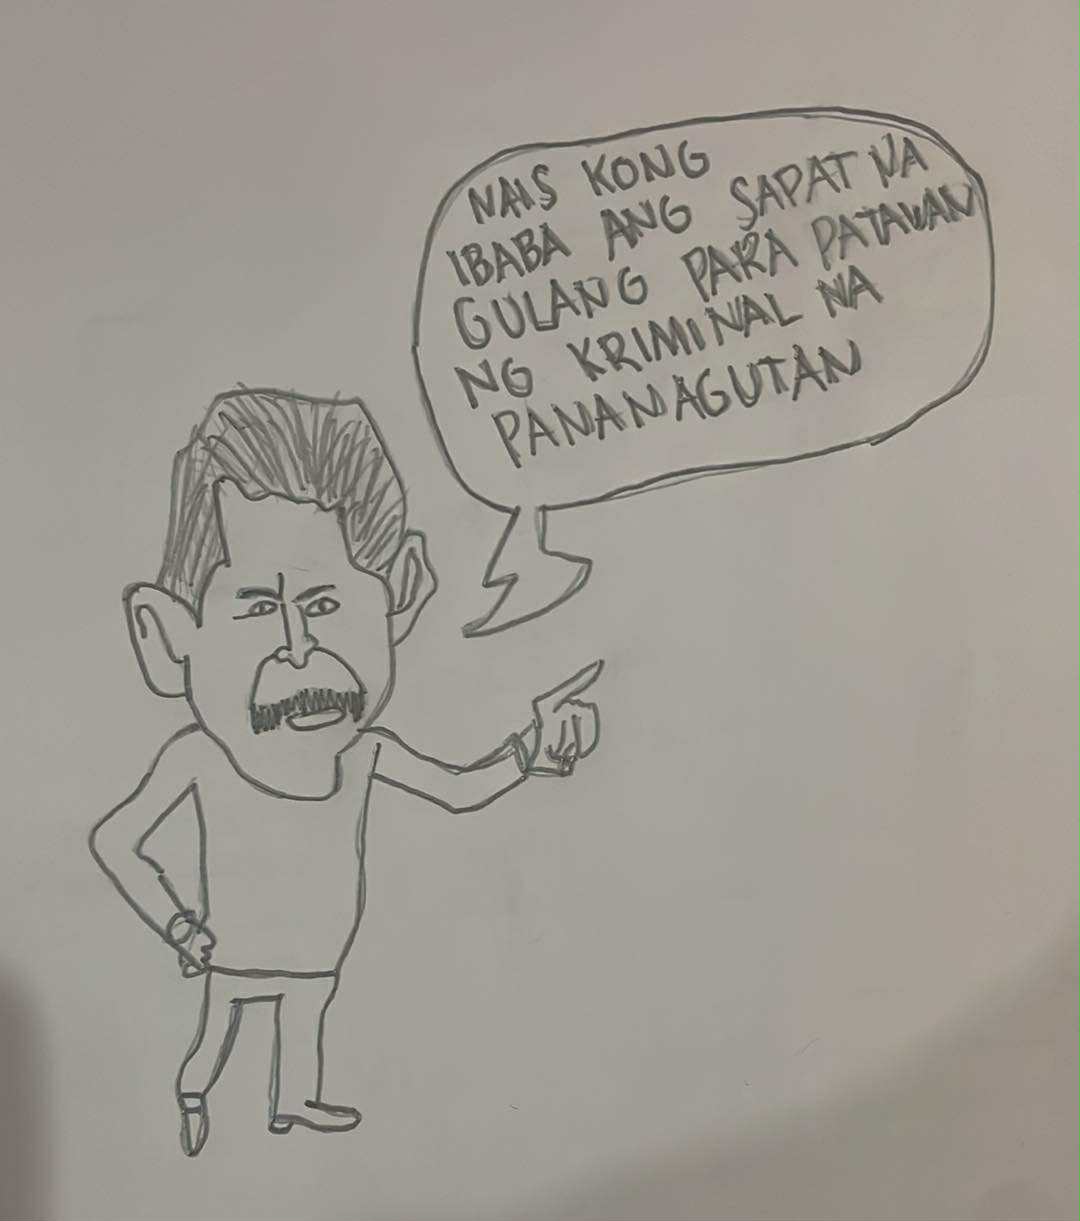 NAIS KONG
IBABA ANG SAPAT NA
GULANG PARA PATAWAN
NG KRIMINAL NA
PANANAGUTAN